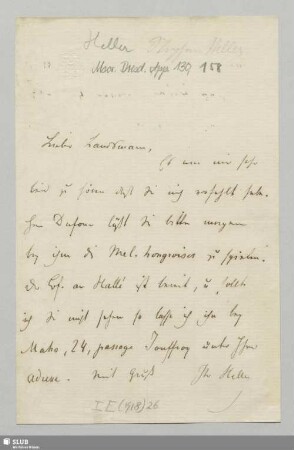 Heller Stephen Heller
Mscr. Dresd. App. 139, 158
Lieber Landsmann,
Es thut mir sehr
leid zu hören daß Sie mich verfehlt habe.
Herr Dufour läßt Sie bitten morgen
bey ihm die Mel. hongroises zu spielen.
Der Brf. an Hallé ist bereit, u sollte
ich Sie nicht sehen so lasse ich ihn bey
Maho, 24, passage Jouffroy unter Ihrer
adresse. Mit Gruß Ihr Heller
I E (1908) 26
SLUB